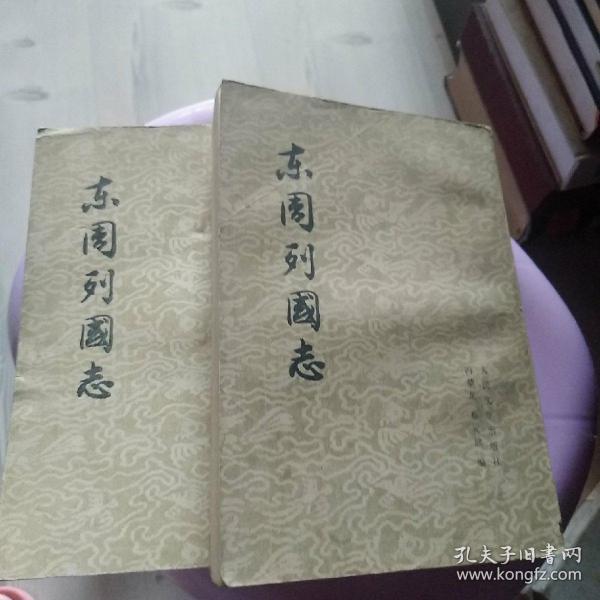 东周列國志
东周列國志
人民文学出版社
冯梦龙 蔡元放 编
孔夫子旧書网
www.kongfz.com